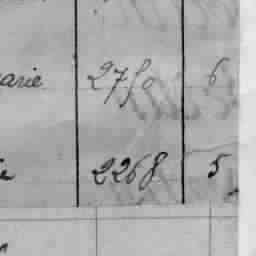 arie 2750 6
2268 5